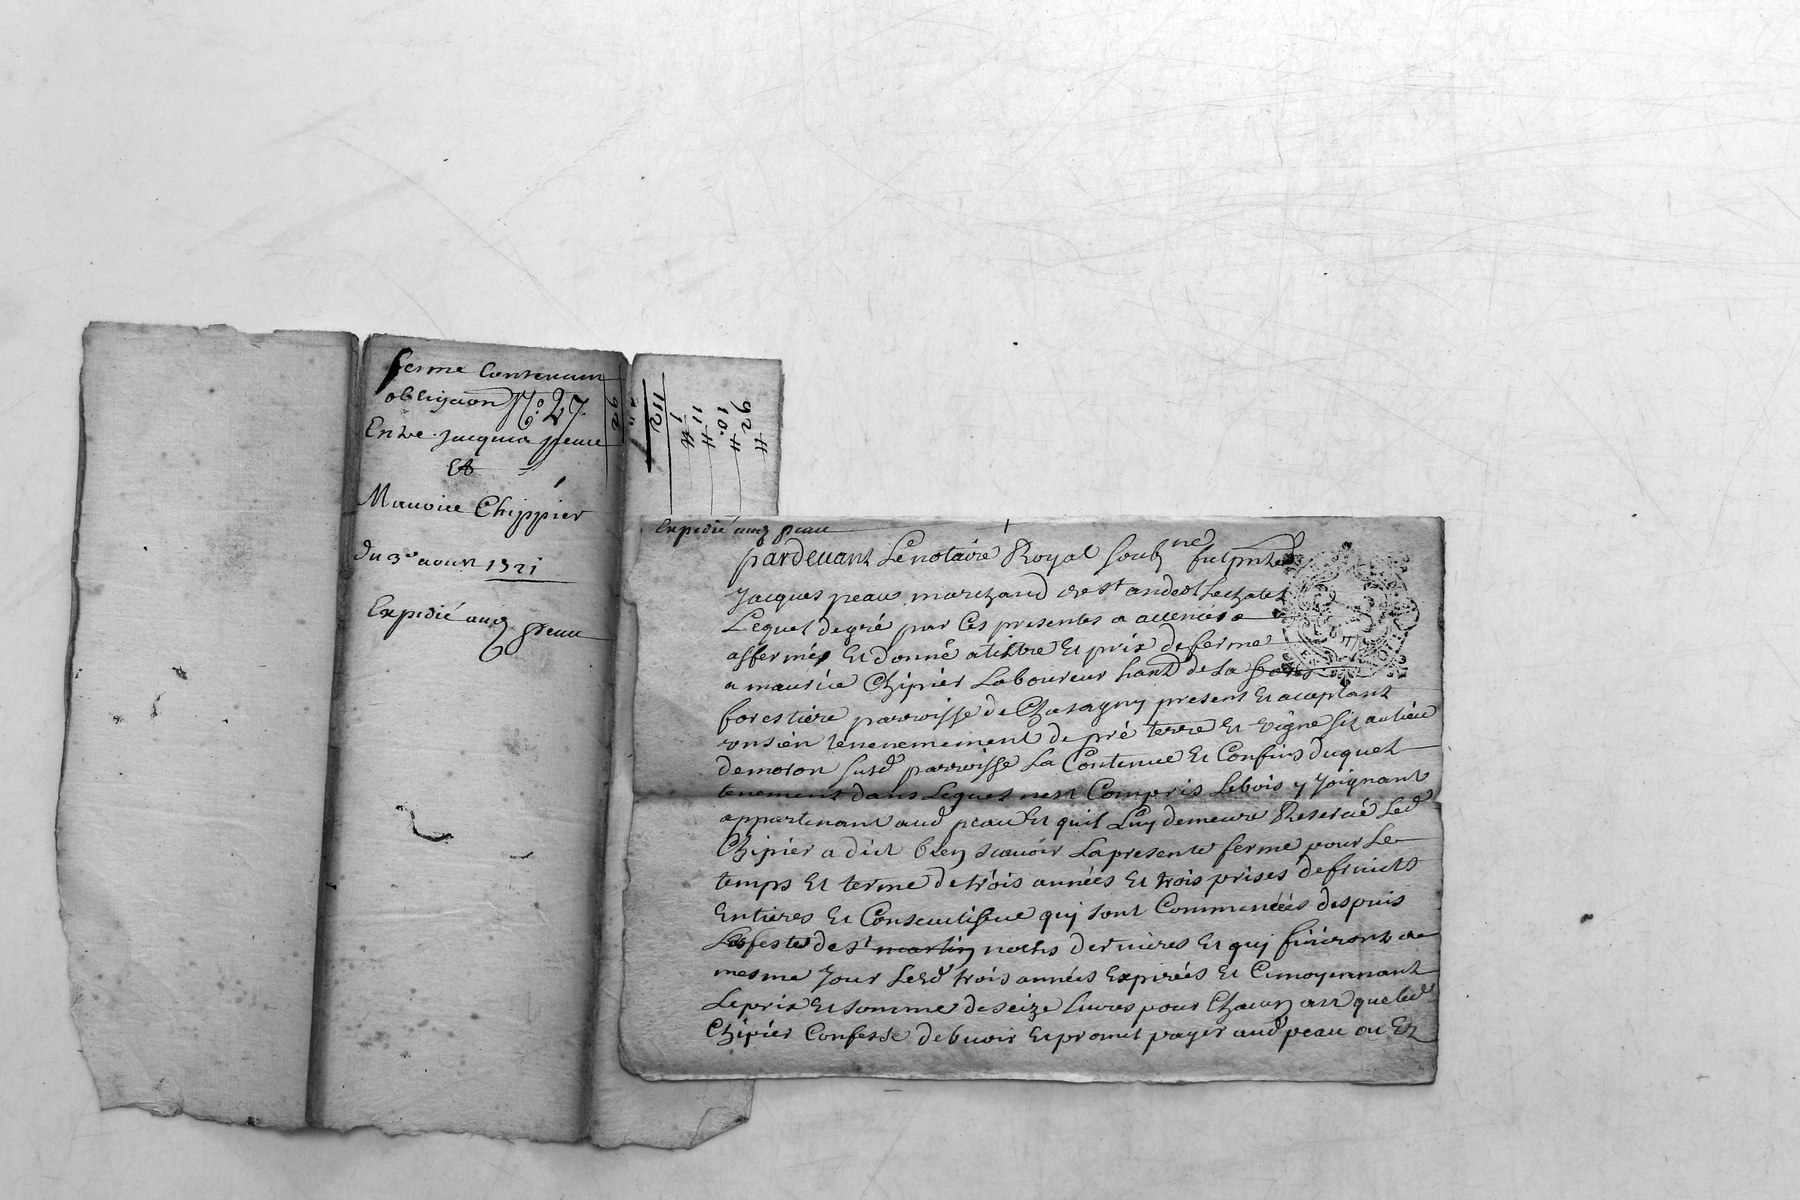 ferme Contenant
obligaon No. 27
Entre Jacques peau
Et
Maurice Chippier
du 3e aoust 1721
Expedié aud peau
92
92 #
10. #
11. #
1 #
112
Expedié aud peau
pardevant Le notaire Royal soubne fut pnt
Jacques peau marchand de st andeol Lechatel
Lequel de gré par Ces presentes a accencé
affermé Et donné a tiltre Et prix de ferme
a maurice Chipier Laboureur hant de La
forestière parroisse de Chasagny present Et acceptant
un sien tenenemement de pré terre Et vigne sis au lieu
de moron susd parroisse La Contenue Et Confins duquel
tenement dans Lequel nest Compris Le bois y Joignant
appartenant aud peau Et quil Luy demeure Reservé Led
Chipier a dict bien scavoir La presente ferme pour Le
temps Et terme de trois années Et trois prises de fruicts
Entieres Et Consecutifve quj sont Commencées despuis
Les festes de st martin dernieres Et quj finiront a
mesme Jour Lesd trois années Expirées Et Cmoyennant
Le prix Et somme de seize Livres pour Chacun an que led
Chipier Confesse debvoir Et promet payer aud peau ou Ez